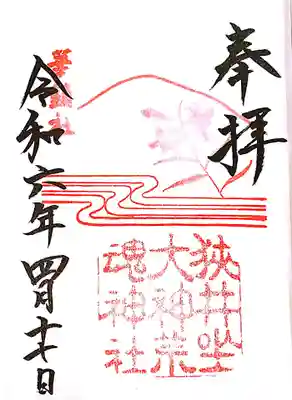 奉拝
狭井坐
大神荒
魂神社
令和六年四月十七日